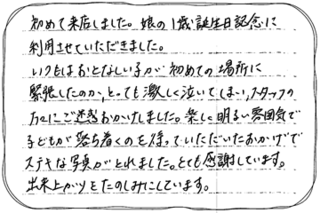 初めて来店しました。娘の1歳誕生日記念に
利用させていただきました。
いつもはおとなしい子が初めての場所に
緊張したのか、とっても激しく泣いてしまい、スタッフの
方にご迷惑おかけしました。楽しく明るい雰囲気で
子どもが落ち着くのを待っていただいたおかげで
ステキな写真がとれました。とても感謝しています。
出来上がりをたのしみにしています。